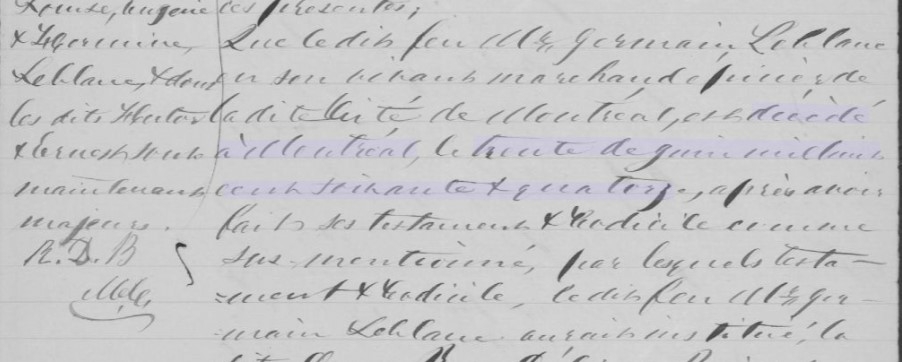 Louise, Eugénie
& Hermine,
Leblanc, & dont
les dits Hector
& Ernest sont
maintenant
majeurs.
R. D. B
ces présentes;
Que le dit feu Mr. Germain Leblanc
en son vivant marchand épicier de
la dite Cité de Montréal, est décédé
à Montréal, le trente de juin mil huit
cent soixante & quatorze, après avoir
fait ses testament & Codicile comme
sus-mentionné, par lesquels testa-
ment & Codicile, le dit feu Mr. Ger-
main Leblanc aurait institué, la